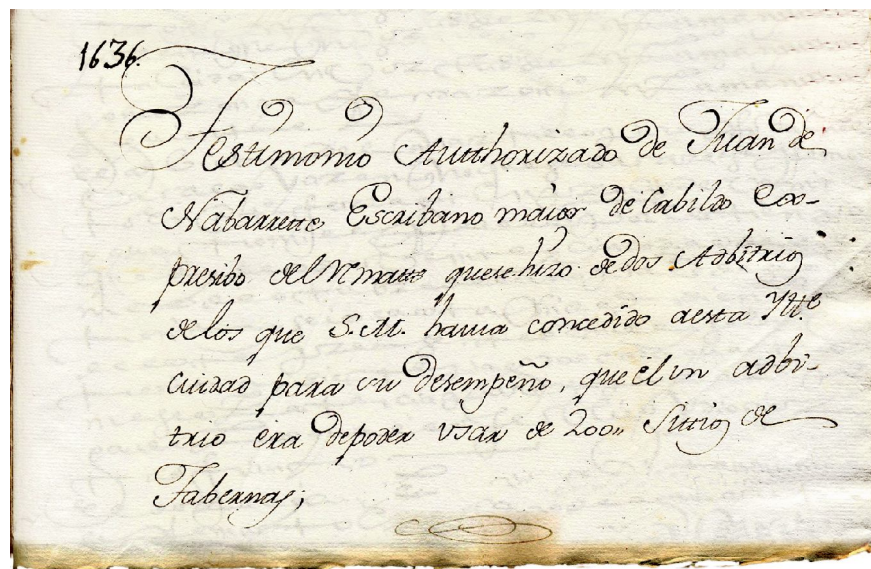 1636.
Testimonio Authorizado de Juan de
Nabarrette Escribano maior de Cabildo Com-
presibo del Rmatte que se hizo de dos Adbitrios
de los que S.M. havia concedido a esta Ytt.e
Ciudad para su desempeño, que el un adbi-
trio era de poder usar de 200,, Sittios de
Tabernas;